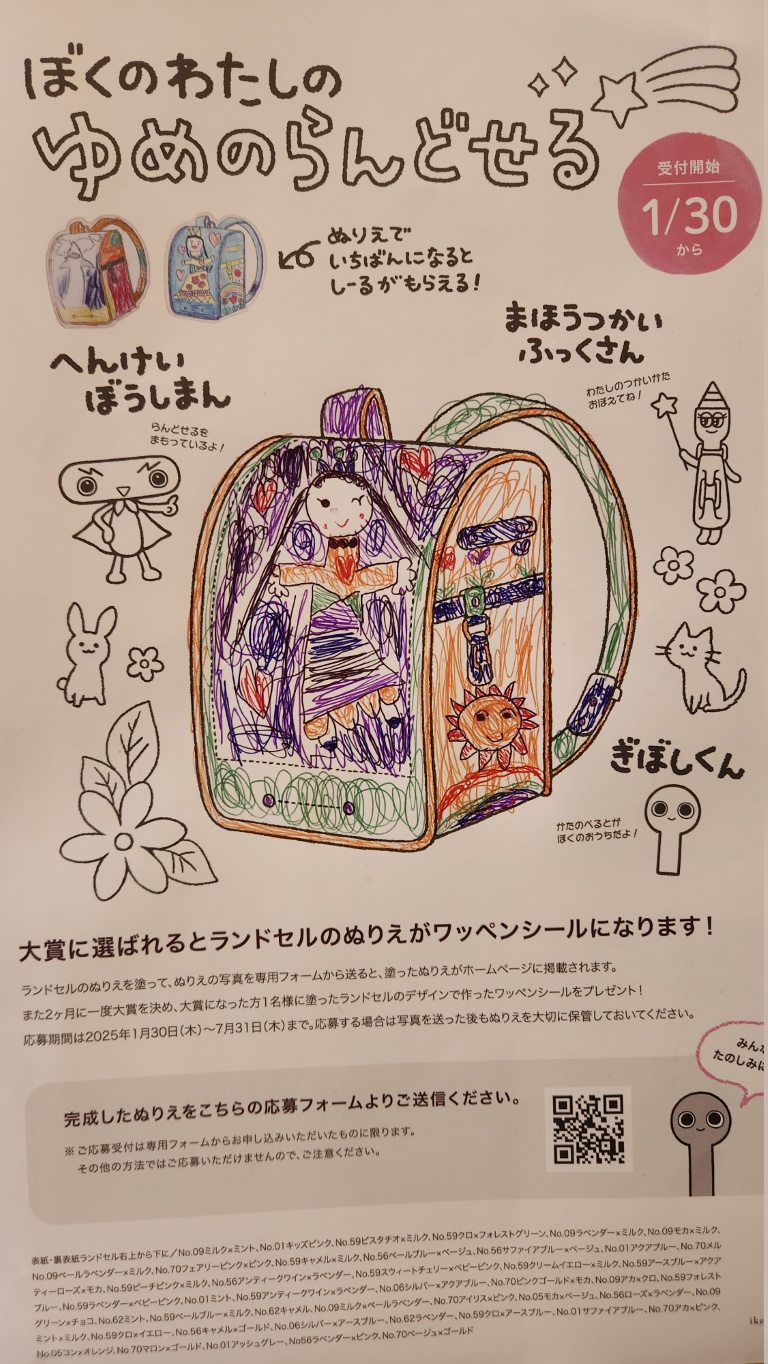 ぼくのわたしの
ゆめのらんどせる
受付開始
1/30
から
ぬりえで
いちばんになると
しーるがもらえる!
まほうつかい
ふっくさん
わたしのつかいかた
おぼえてね!
へんけい
ぼうしまん
らんどせるを
まもっているよ!
ぎぼしくん
かたのべるとが
ぼくのおうちだよ!
大賞に選ばれるとランドセルのぬりえがワッペンシールになります!
ランドセルのぬりえを塗って、ぬりえの写真を専用フォームから送ると、塗ったぬりえがホームページに掲載されます。
また2ヶ月に一度大賞を決め、大賞になった方1名様に塗ったランドセルのデザインで作ったワッペンシールをプレゼント!
応募期間は2025年1月30日(木)〜7月31日(木)まで。応募する場合は写真を送った後もぬりえを大切に保管しておいてください。
みん
たのしみに
完成したぬりえをこちらの応募フォームよりご送信ください。
※ご応募受付は専用フォームからお申し込みいただいたものに限ります。
その他の方法ではご応募いただけませんので、ご注意ください。
表紙・裏表紙ランドセル右上から下に/No.09ミルク×ミント、No.01キッズピンク、No.59ピスタチオ×ミルク、No.59クロ×フォレストグリーン、No.09ラベンダー×ミルク、No.09モカ×ミルク、
No.09ペールラベンダー×ミルク、No.70フェアリーピンク×ピンク、No.59キャメル×ミルク、No.56ペールブルー×ベージュ、No.56サファイアブルー×ベージュ、No.01アクアブルー、No.70メル
ティーローズ×モカ、No.59ピーチピンク×ミルク、No.56アンティークワイン×ラベンダー、No.59スウィートチェリー×ベビーピンク、No.59クリームイエロー×ミルク、No.59アースブルー×アクア
ブルー、No.59ラベンダー×ベビーピンク、No.01ミント、No.59アンティークワイン×ラベンダー、No.06シルバー×アクアブルー、No.70ピンクゴールド×モカ、No.09アカ×クロ、No.59フォレスト
グリーン×チョコ、No.62ミント、No.59ペールブルー×ミルク、No.62キャメル、No.09ミルク×ペールラベンダー、No.70アイリス×ピンク、No.05モカ×ベージュ、No.56ローズ×ラベンダー、No.09
ミント×ミルク、No.59クロ×イエロー、No.56キャメル×ゴールド、No.06シルバー×アースブルー、No.62ラベンダー、No.59クロ×アースブルー、No.01サファイアブルー、No.70アカ×ピンク、
No.05コン×オレンジ、No.70マロン×ゴールド、No.01アッシュグレー、No56ラベンダー×ピンク、No.70ベージュ×ゴールド